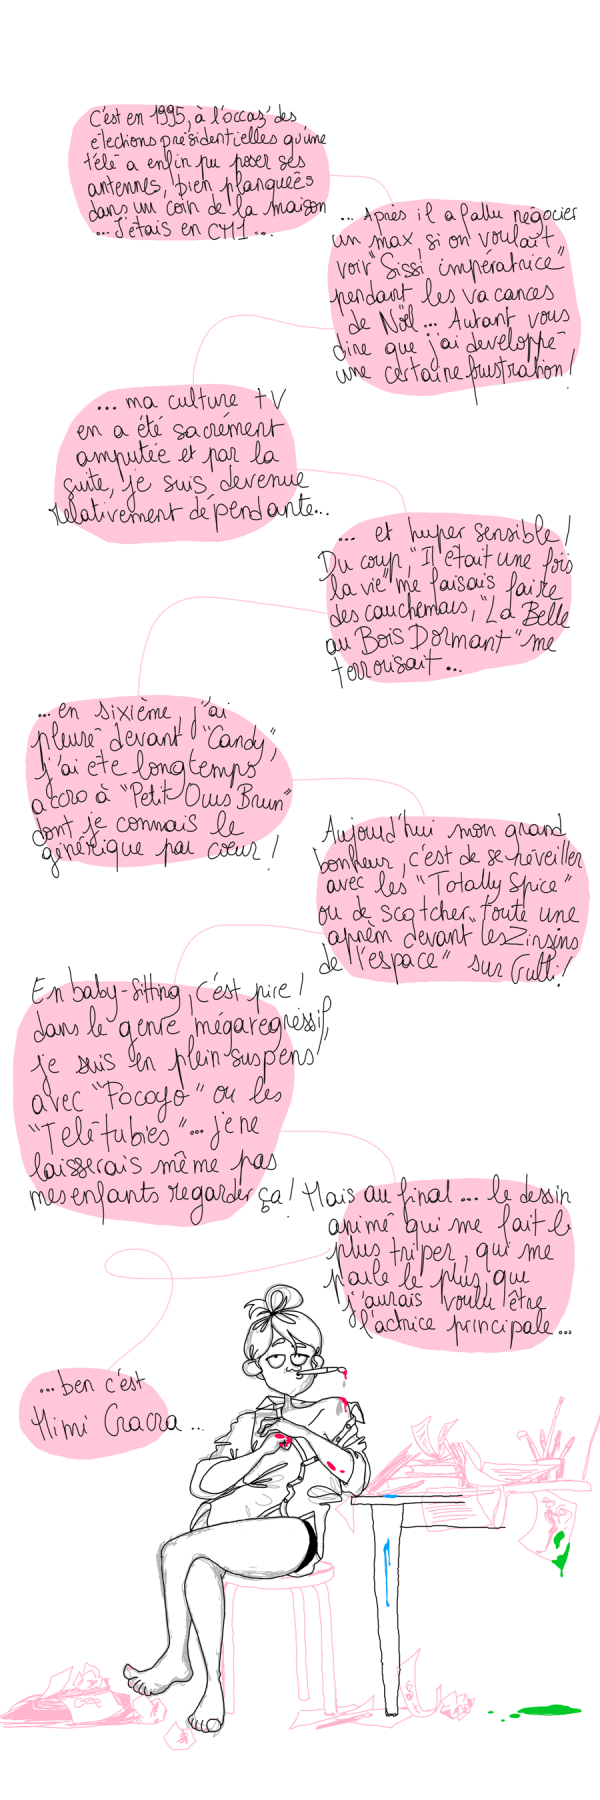 C'est en 1995, à l'occaz' des
élections présidentielles qu'une
télé a enfin pu poser ses
antennes, bien planquées
dans un coin de la maison
... J'étais en CM1 ...
... Après il a fallu négocier
un max si on voulait
voir "Sissi impératrice"
pendant les vacances
de Nöel ... Autant vous
dire que j'ai développé
une certaine frustration !
... ma culture TV
en a été sacrément
amputée et par la
suite, je suis devenue
relativement dépendante...
... et hyper sensible !
Du coup, "Il était une fois
la vie" me faisais faire
des cauchemars, "La Belle
au Bois Dormant" me
terrorisait ...
... en sixième, j'ai
pleuré devant "Candy",
j'ai été longtemps
accro à "Petit Ours Brun"
dont je connais le
générique par cœur !
Aujourd'hui mon grand
bonheur, c'est de se réveiller
avec les "Totally Spice"
ou de scotcher toute une
aprèm devant "les Zinzins
de l'espace" sur Gulli !
En baby-sitting, c'est pire !
dans le genre mégaregressif,
je suis en plein suspens
avec "Pocoyo" ou les
"Télétubies"... je ne
laisserais même pas
mes enfants regarder ça !
Mais au final ... le dessin
animé qui me fait le
plus triper, qui me
parle le plus, que
j'aurais voulu être
l'actrice principale ...
... ben c'est
Mimi Cracra ...